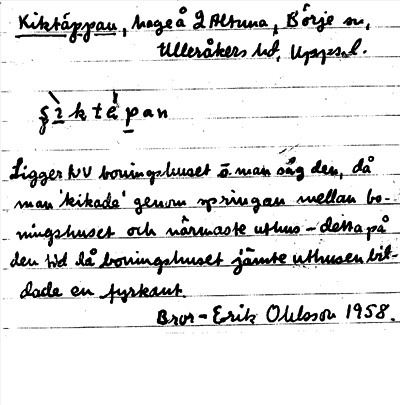 Kiktäppan, hage å 2 Altuna, Börje sn,
Ulleråkers hd, Uppsal.
ṣìktépan
Ligger NV boningshuset o. man såg den, då
man 'kikade' genom springan mellan bo-
ningshuset och närmaste uthus – detta på
den tid då boningshuset jämte uthusen bil-
dade en fyrkant.
Bror-Erik Ohlsson 1958.